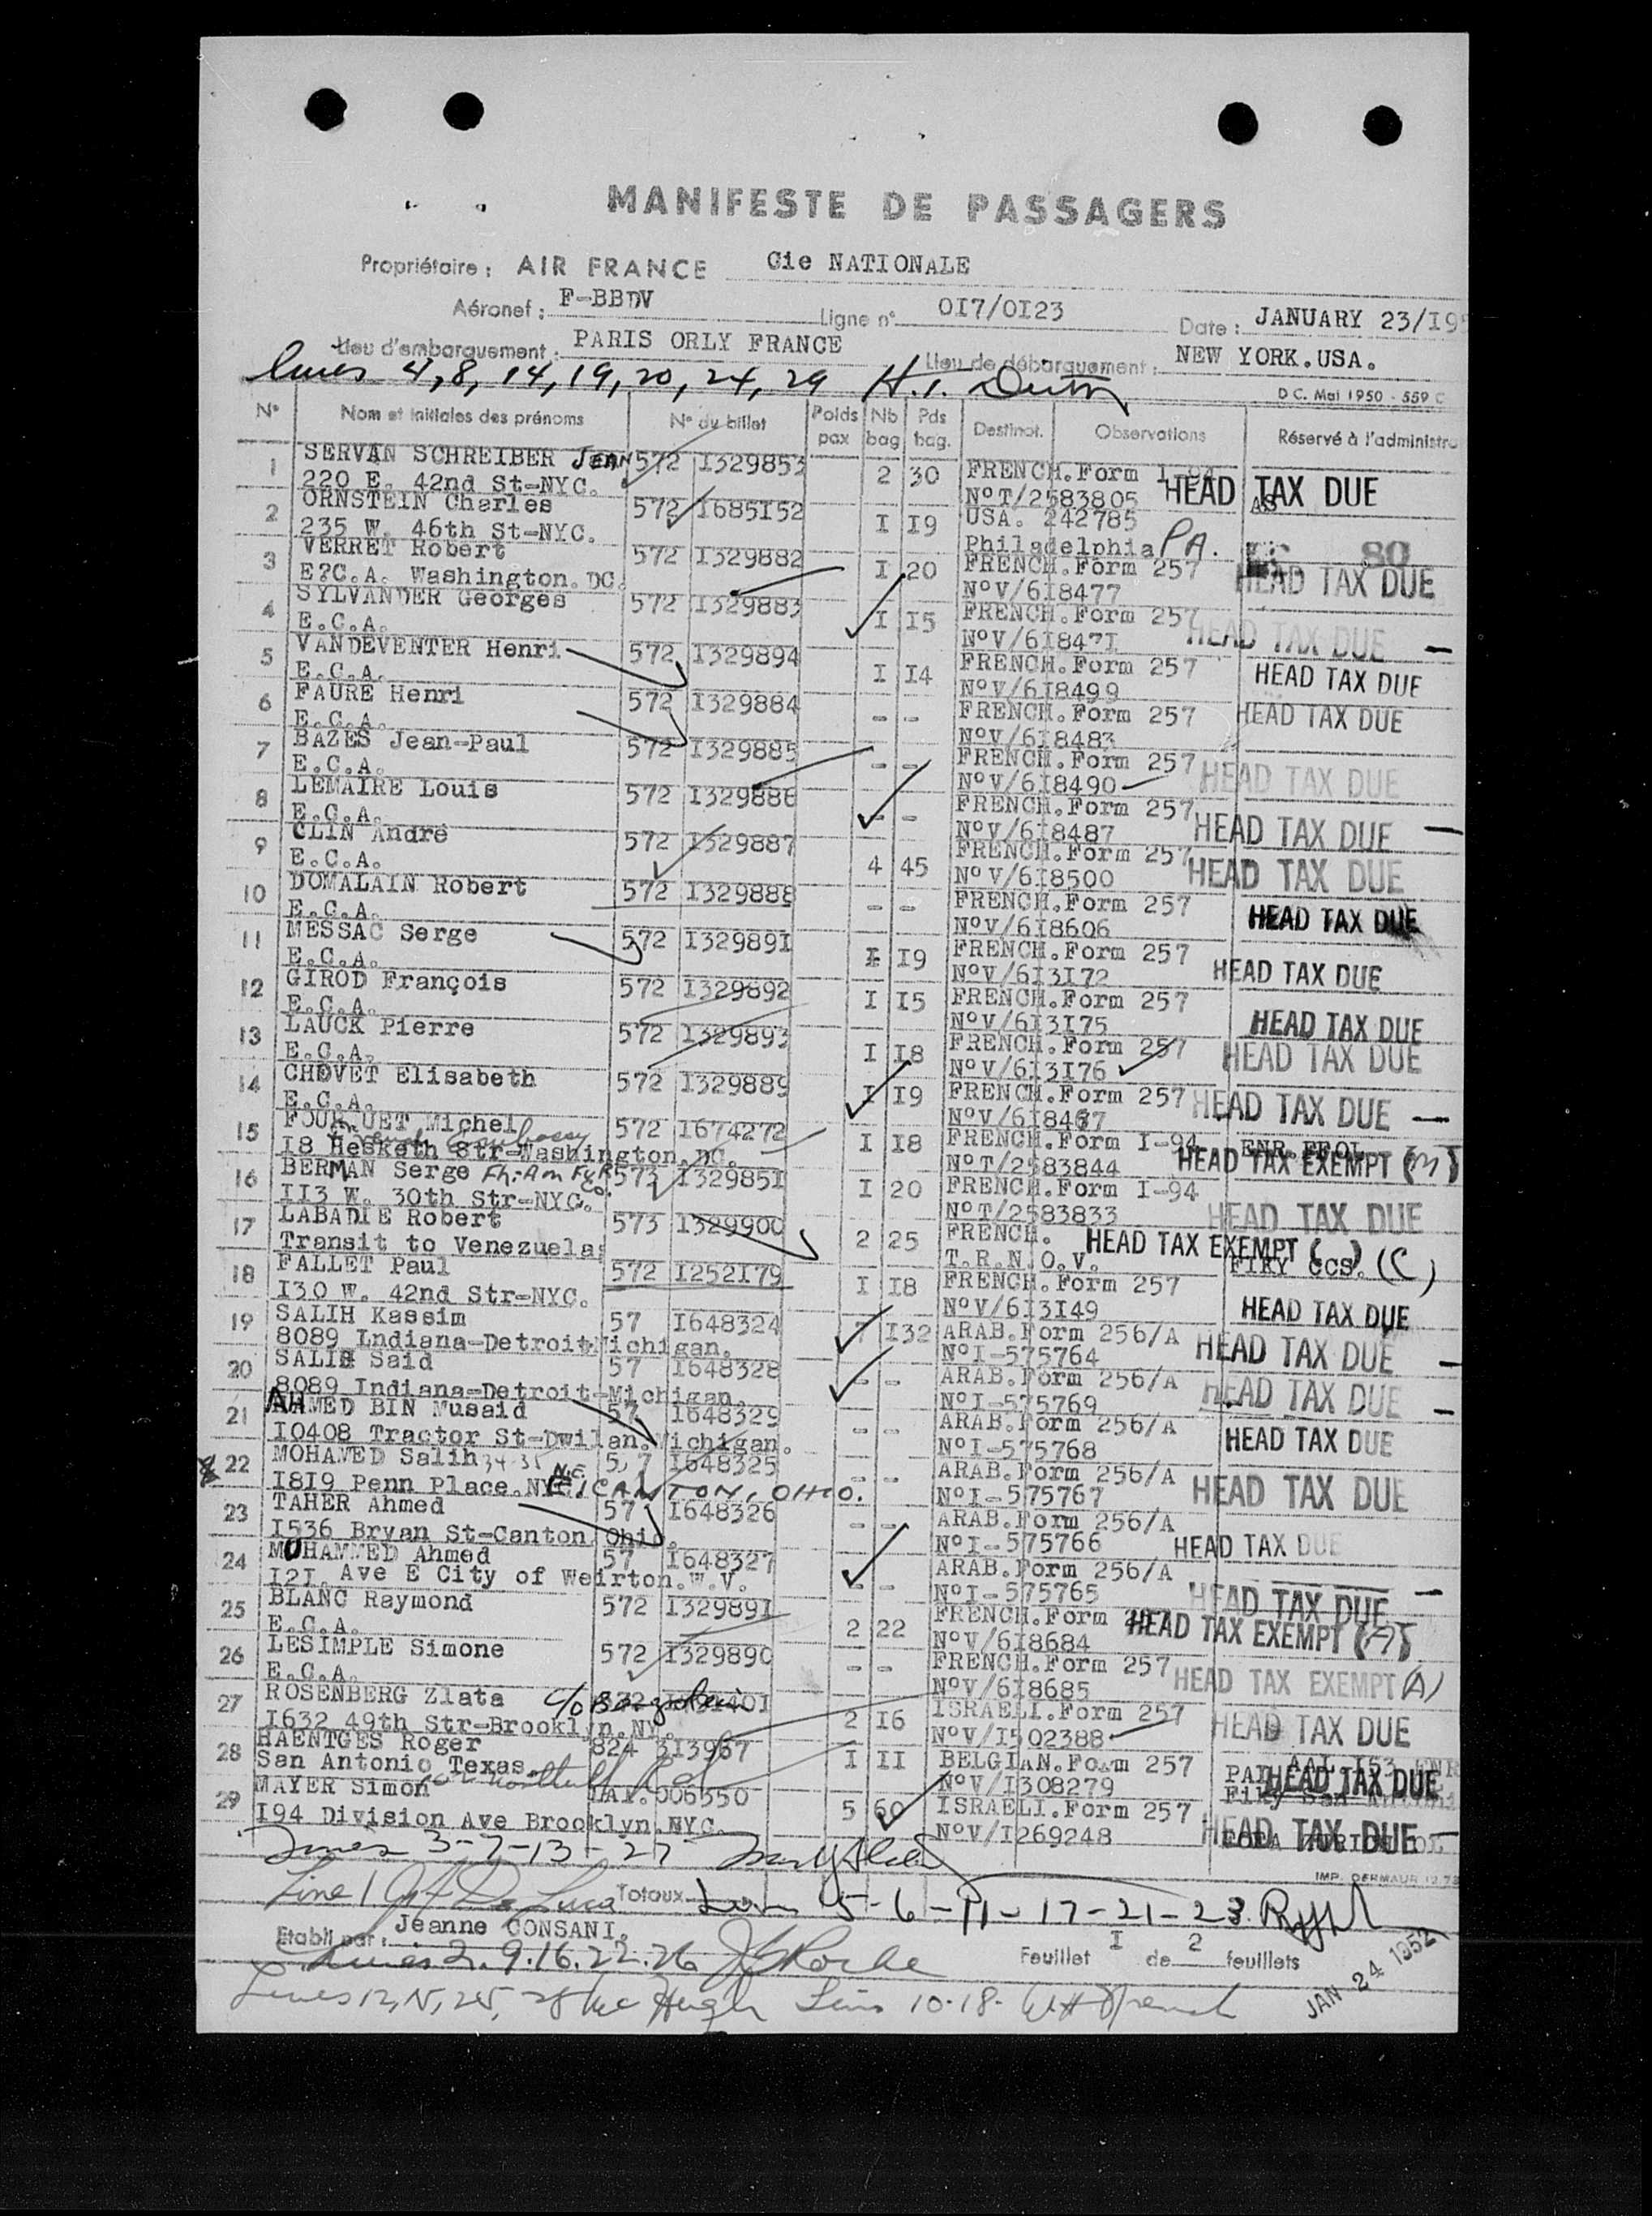 MANIFESTE DE PASSAGERS
Propriétaire : AIR FRANCE Cie NATIONALE
Aéronef : F-BBDV Ligne n° 0I7/0I23 Date : JANUARY 23/I95
Lieu d'embarquement : PARIS ORLY FRANCE Lieu de débarquement : NEW YORK.USA.
lines 4, 8, 14, 19, 20, 24, 29 H.I.
D C. Mai 1950 - 559 C
N° Nom et initiales des prénoms N° du billet Poids pax Nb bag Pds bag. Destinat. Observations Réservé à l'administra
1 SERVAN SCHREIBER JEAN 572 I329853 2 30 FRENCH.Form I-94
220 E. 42nd St-NYC. N°T/2583805 HEAD TAX DUE
2 ORNSTEIN Charles 572 I685I52 I I9 USA. 242785
235 W. 46th St-NYC. Philadelphia PA.
3 VERRET Robert 572 I329882 I 20 FRENCH.Form 257 HEAD TAX DUE
E?C.A. Washington.DC. N°V/6I8477
4 SYLVANDER Georges 572 I329883 I I5 FRENCH.Form 257 HEAD TAX DUE —
E.C.A. N°V/6I847I
5 VANDEVENTER Henri 572 I329894 I I4 FRENCH.Form 257 HEAD TAX DUE
E.C.A. N°V/6I8499
6 FAURE Henri 572 I329884 - - FRENCH.Form 257 HEAD TAX DUE
E.C.A. N°V/6I8483
7 BAZES Jean-Paul 572 I329885 - - FRENCH.Form 257 HEAD TAX DUE
E.C.A. N°V/6I8490
8 LEMAIRE Louis 572 I329886 - - FRENCH.Form 257 HEAD TAX DUE —
E.C.A. N°V/6I8487
9 CLIN André 572 I329887 4 45 FRENCH.Form 257 HEAD TAX DUE
E.C.A. N°V/6I8500
10 DOMALAIN Robert 572 I329888 - - FRENCH.Form 257 HEAD TAX DUE
E.C.A. N°V/6I8606
11 MESSAC Serge 572 I32989I I I9 FRENCH.Form 257 HEAD TAX DUE
E.C.A. N°V/6I3I72
12 GIROD François 572 I329892 I I5 FRENCH.Form 257 HEAD TAX DUE
E.C.A. N°V/6I3I75
13 LAUCK Pierre 572 I329893 I I8 FRENCH.Form 257 HEAD TAX DUE
E.C.A. N°V/6I3I76
14 CHOVET Elisabeth 572 I329889 I I9 FRENCH.Form 257 HEAD TAX DUE —
E.C.A. N°V/6I8467
15 FOURQUET Michel 572 I674272 I I8 FRENCH.Form I-94
French Embassy
I8 Hesketh Str-Washington.DC. N°T/2583844 HEAD TAX EXEMPT (M)
16 BERMAN Serge Fh-Am Fur Co. 573 I32985I I 20 FRENCH.Form I-94
II3 W. 30th Str-NYC. N°T/2583833 HEAD TAX DUE
17 LABADIE Robert 573 I329900 2 25 FRENCH. HEAD TAX EXEMPT (C)
Transit to Venezuela. T.R.N.O.V.
18 FALLET Paul 572 I252I79 I I8 FRENCH.Form 257
I30 W. 42nd Str-NYC. N°V/6I3I49 HEAD TAX DUE
19 SALIH Kassim 57 I648324 7 I32 ARAB.Form 256/A HEAD TAX DUE —
8089 Indiana-Detroit-Michigan. N°I-575764
20 SALIH Said 57 I648328 - - ARAB.Form 256/A HEAD TAX DUE —
8089 Indiana-Detroit-Michigan. N°I-575769
21 AHMED BIN Musaid 57 I648329 - - ARAB.Form 256/A HEAD TAX DUE
I0408 Tractor St-Dwilan.Michigan. N°I-575768
22 MOHAMED Salih 57 I648325 - - ARAB.Form 256/A HEAD TAX DUE
I8I9 Penn Place.N.E., CANTON, OHIO. N°I-575767
23 TAHER Ahmed 57 I648326 - - ARAB.Form 256/A
I536 Bryan St-Canton Ohio. N°I-575766 HEAD TAX DUE
24 MOHAMMED Ahmed 57 I648327 - - ARAB.Form 256/A
I2I. Ave E City of Weirton.W.V. N°I-575765 HEAD TAX DUE —
25 BLANC Raymond 572 I32989I 2 22 FRENCH.Form 257 HEAD TAX EXEMPT (A)
E.C.A. N°V/6I8684
26 LESIMPLE Simone 572 I329890 - - FRENCH.Form 257 HEAD TAX EXEMPT (A)
E.C.A. N°V/6I8685
27 ROSENBERG Zlata c/o 2 I6 ISRAELI.Form 257 HEAD TAX DUE
I632 49th Str-Brooklyn.NY. N°V/I502388
28 HAENTGES Roger 824 3I3967 I II BELGIAN.Form 257 HEAD TAX DUE
San Antonio Texas. N°V/I308279
29 MAYER Simon 006550 5 60 ISRAELI.Form 257
I94 Division Ave Brooklyn.NYC. N°V/I269248 HEAD TAX DUE —
Lines 3-7-13-27
IMP. DERMAUR
Line 1 De Luca Totaux Lines 5-6-11-17-21-23
Etabli par : Jeanne CONSANI.
Lines 2.9.16.22.26 Roche Feuillet I de 2 feuillets
Lines 12, 15, 25, 28 McHugh Lines 10-18-
JAN 24 1952